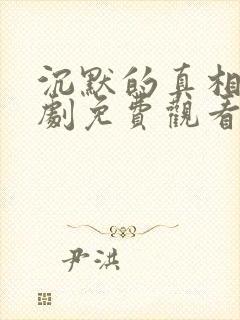 沉默的真相
劇免費觀看
尹洪